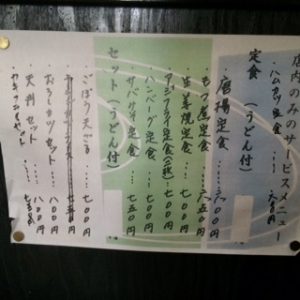 店内のみのサービスメニュー
ハムカツ定食 … 六五〇円
定食 (うどん付)
唐揚定食 … 六〇〇円
もつ煮定食 … 六五〇円
生姜焼定食 … 七〇〇円
アジフライ定食(二枚) … 七〇〇円
ハンバーグ定食 … 七〇〇円
サバサオ定食 … 七五〇円
セット (うどん付)
ごぼう天 … 七〇〇円
おろしカツセット … 八〇〇円
天丼セット … 八〇〇円